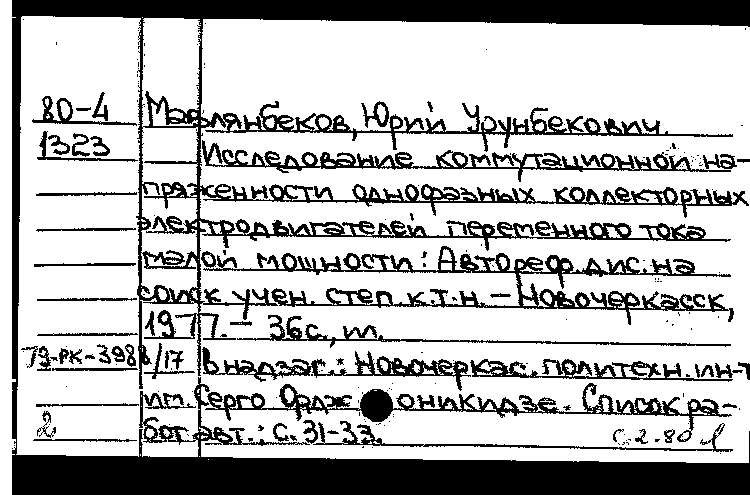 80-4 Мавлянбеков, Юрий Урунбекович.
1323 Исследование коммутационной на-
пряженности однофазных коллекторных
электродвигателей переменного тока
малой мощности: Автореф. дис. на
соиск. учен. степ. к.т.н. – Новочеркасск,
1977. – 36с., ил.
79-РК-3988/17 В надзаг.: Новочеркас. политехн. ин-т
им. Серго Орджоникидзе. Список ра-
2 бот авт.: с. 31-33.